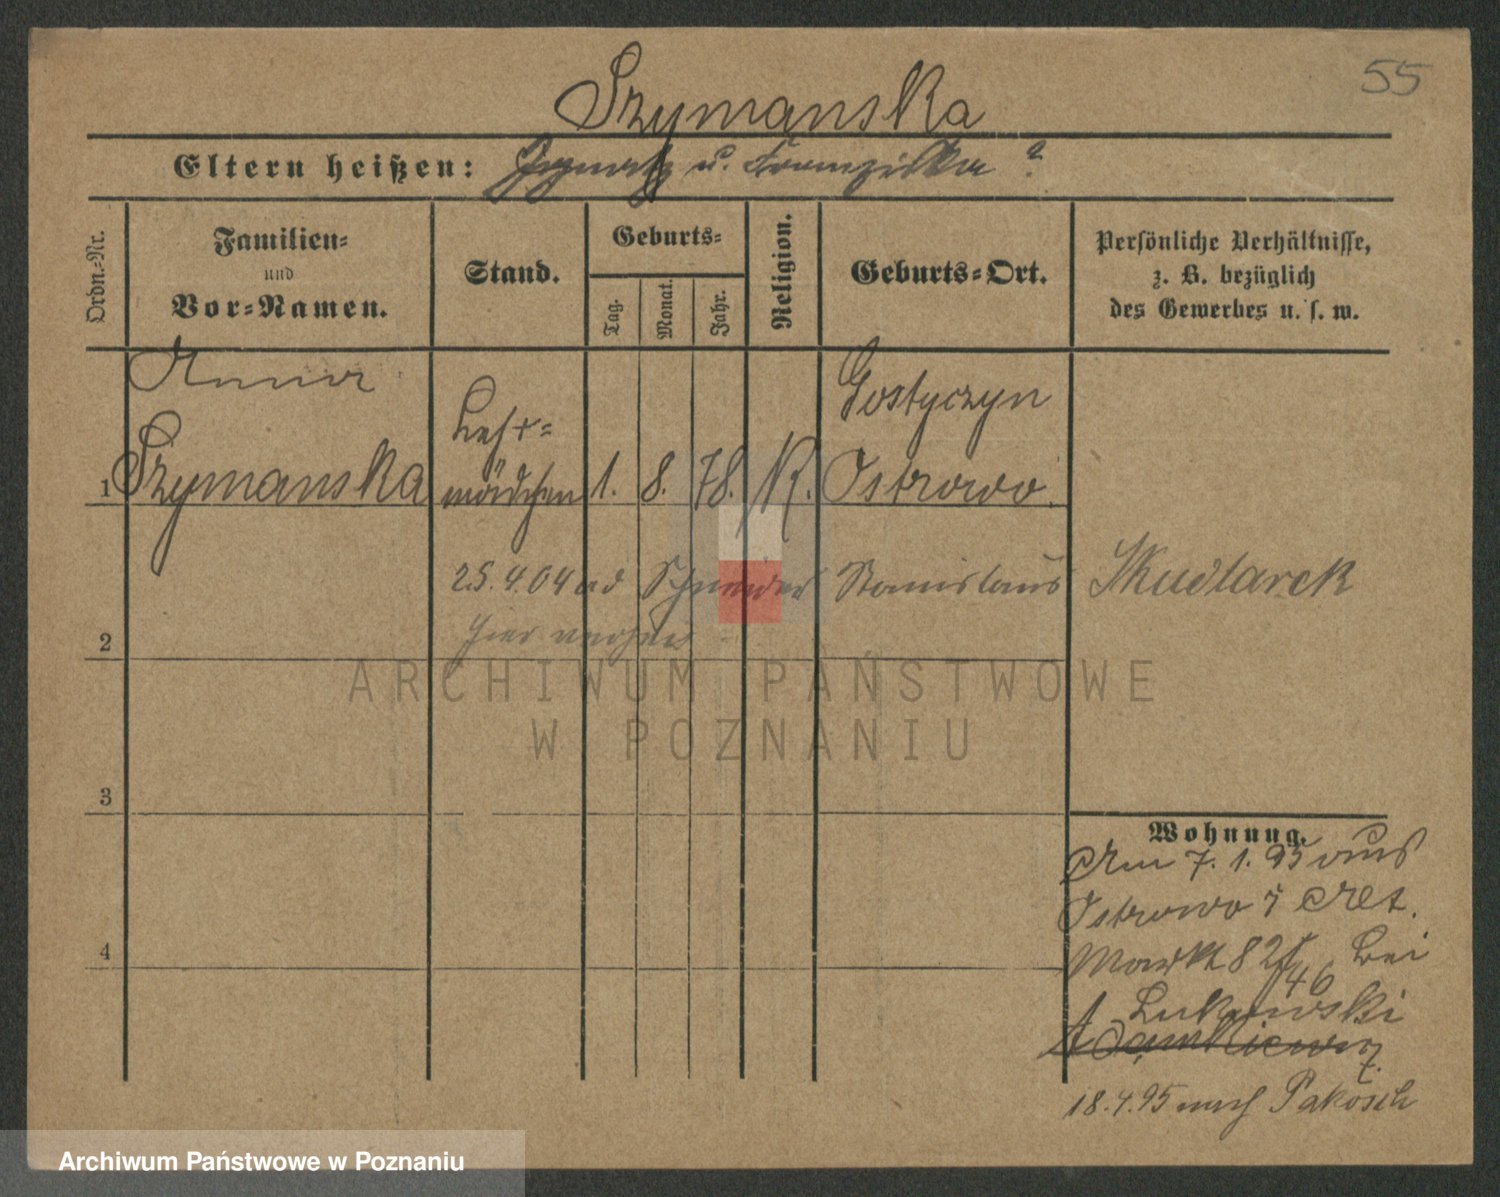 55
Szymanska
Eltern heißen: Ignatz u. Franziska ?
Ordn.-Nr.
Familien-
und
Vor-Namen.
Stand.
Geburts-
Tag.
Monat.
Jahr.
Religion.
Geburts-Ort.
Persönliche Verhältnisse,
z. B. bezüglich
des Gewerbes u. s. w.
Anna
Gostyczyn
Lehr-
1 Szymanska mädchen 1. 8. 78. K. Ostrowo.
25.4.04 ad Schneider Stanislaus Skudlarek
2 hier
3
4
Wohnung.
Am 7. 1. 95 aus
Ostrowo
Markt 82 bei
46
Lukowski
Adamkiewicz
18.4.95 nach Pakosch
ARCHIWUM PAŃSTWOWE
W POZNANIU
Archiwum Państwowe w Poznaniu